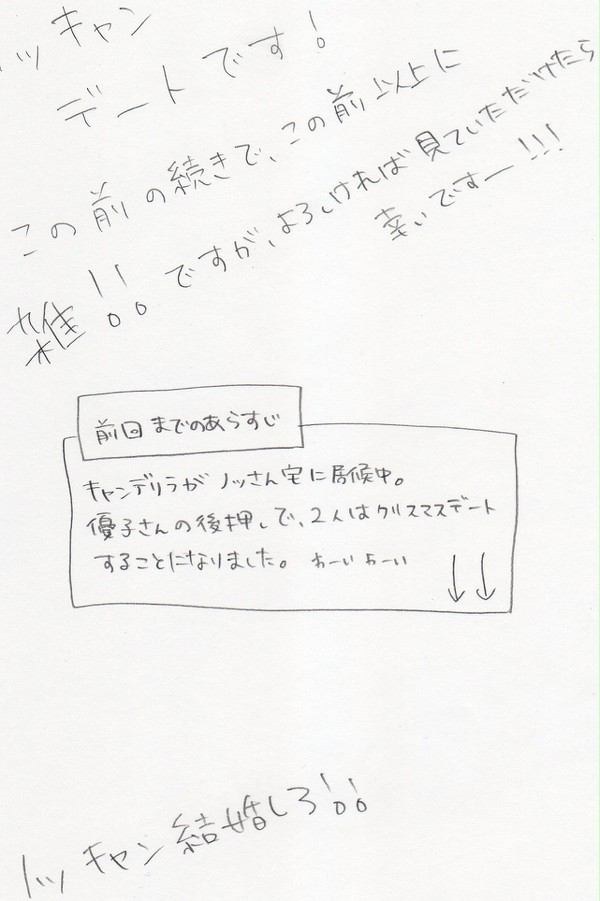 ノッキャン
デートです!
この前の続きで、この前以上に
雑!!ですが、よろしければ見ていただけたら
幸いですー!!!
前回までのあらすじ
キャンデリラがノッさん宅に居候中。
優子さんの後押しで、2人はクリスマスデート
することになりました。わーいわーい
↓↓
ノッキャン結婚しろ!!